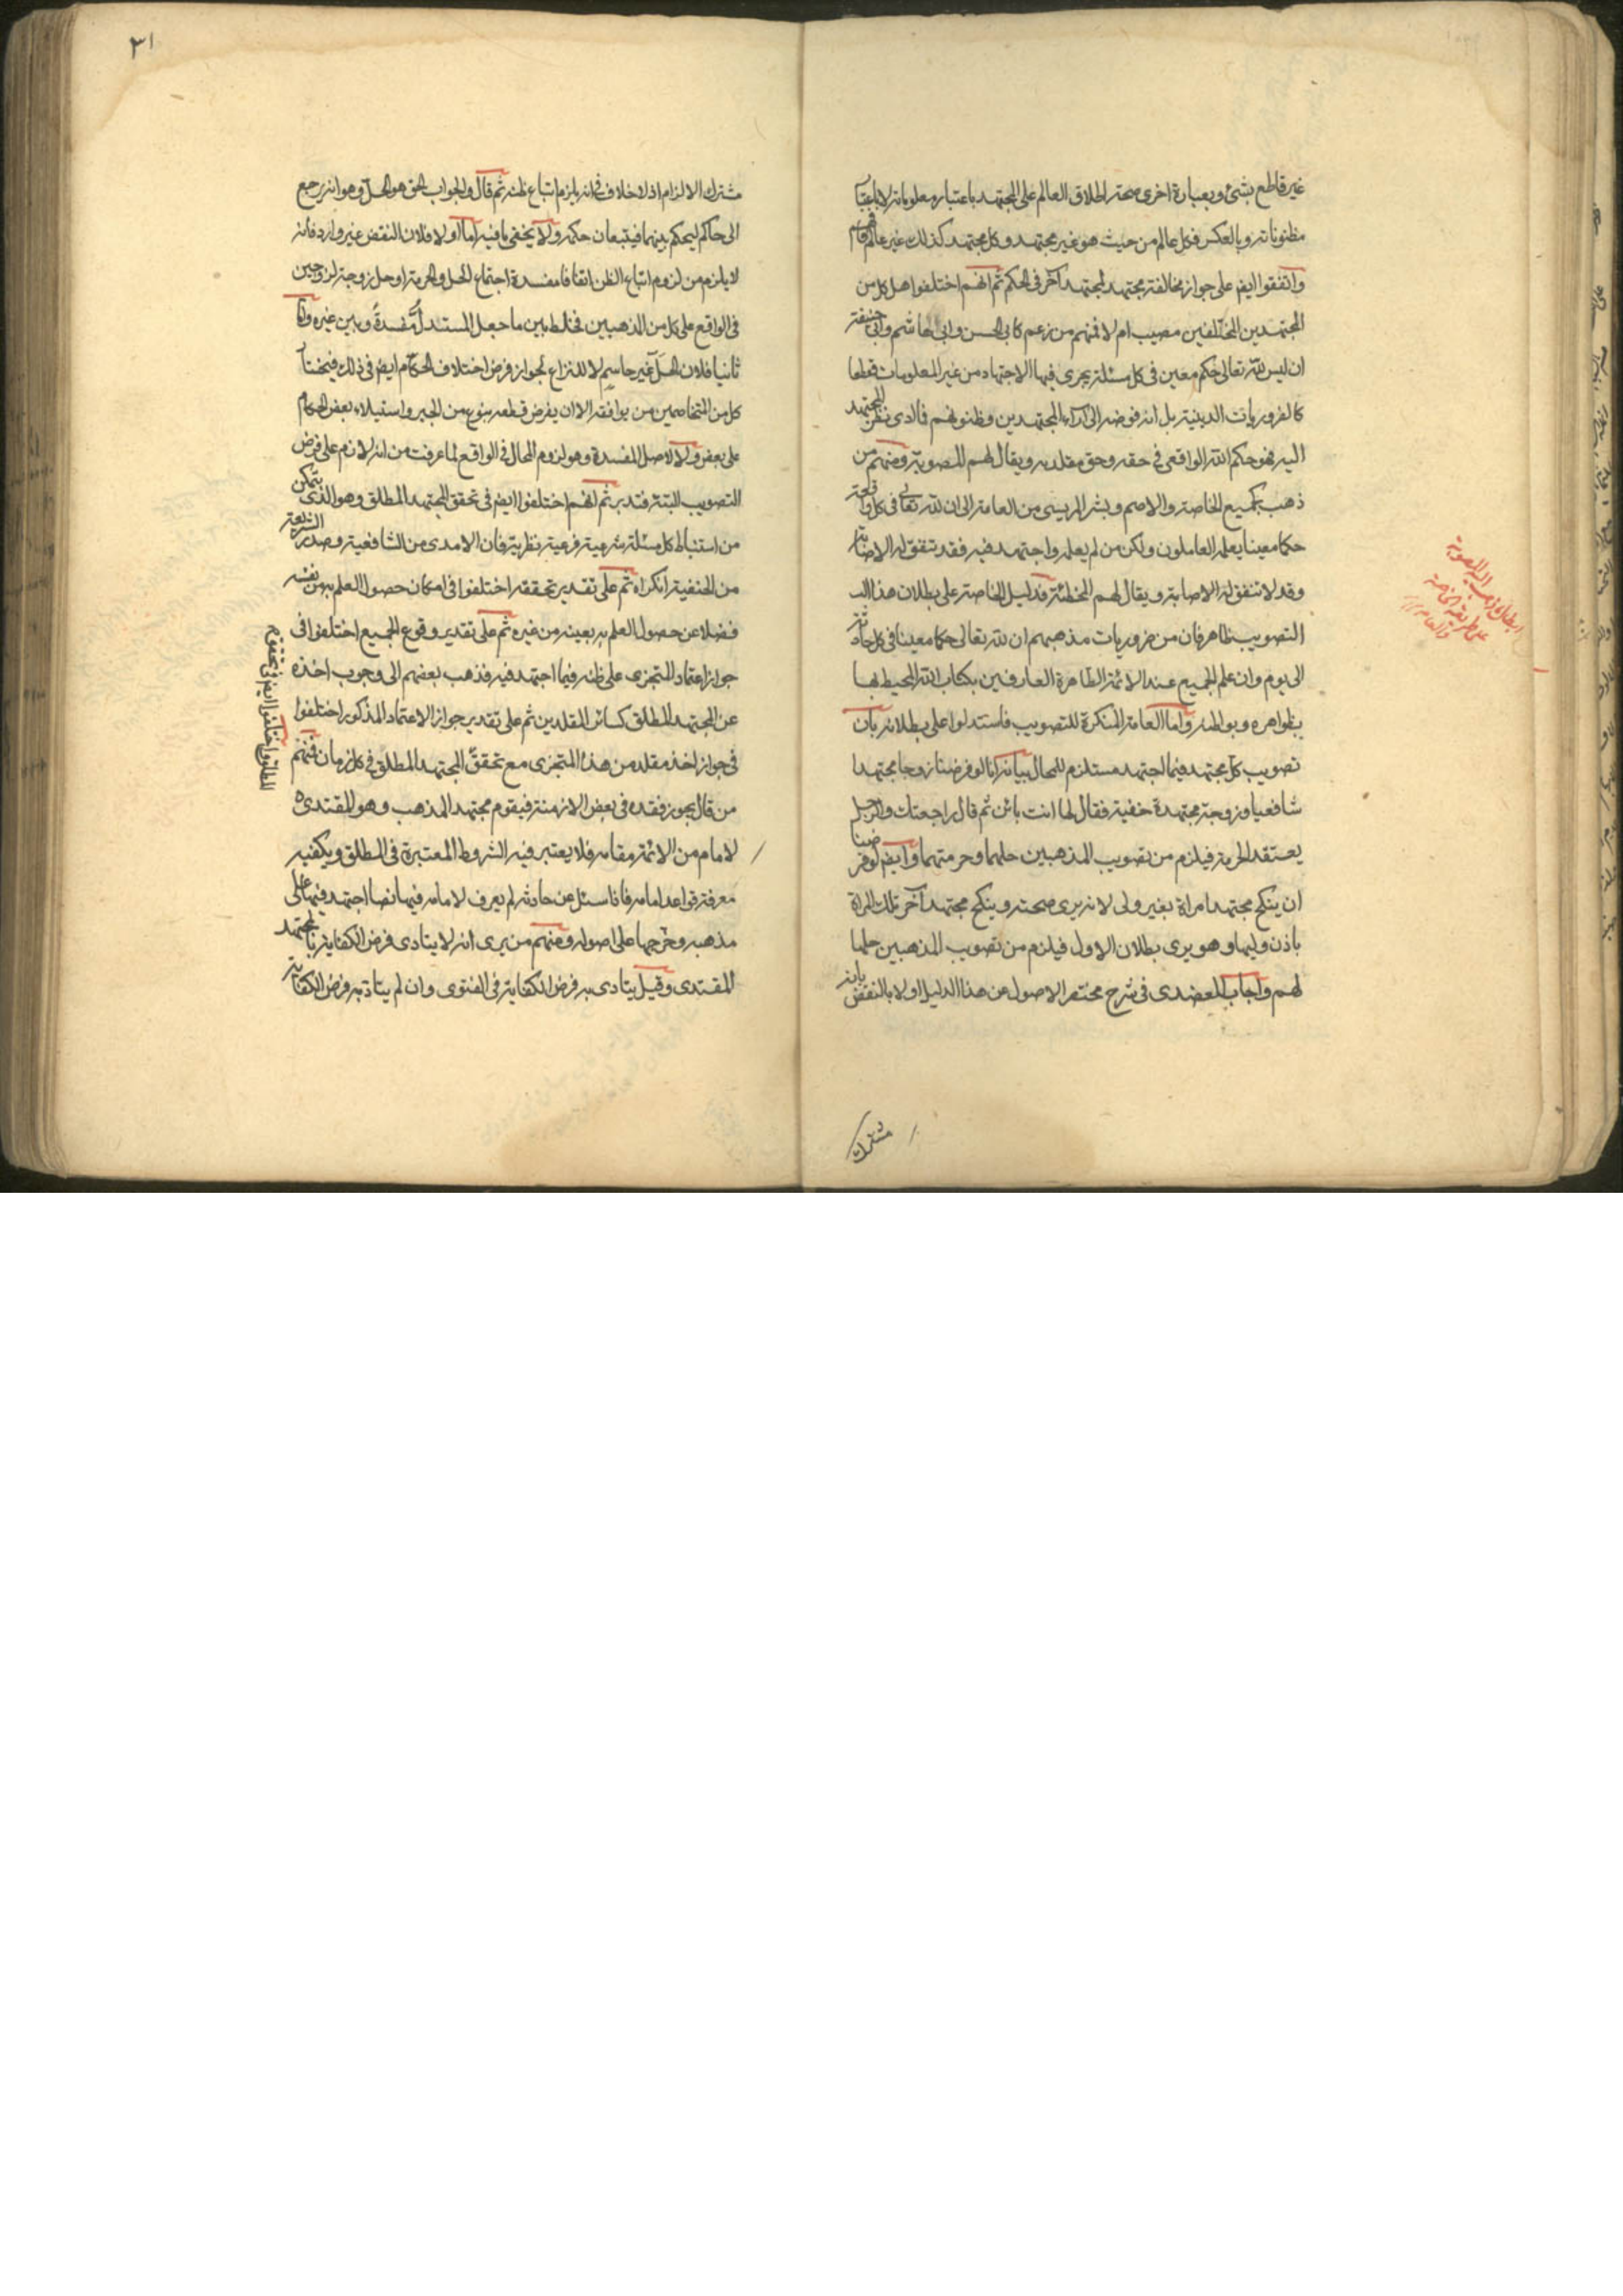 غير قاطع بشئ وبعبارة اخرى صحة اطلاق العالم على المجتهد باعتبار معلوماته لا باعتبار
مظنوناته وبالعكس فكل عالم من حيث هو غير مجتهد وكل مجتهد كذلك غير عالم
واتفقوا ايضا على جواز مخالفة مجتهد لمجتهد آخر فى الحكم ثم انهم اختلفوا هل كل من
المجتهدين المختلفين مصيب ام لا فمنهم من زعم كابى الحسن وابى هاشم وابى حنيفة
ان ليس لله تعالى حكم معين فى كل مسئلة يجرى فيها الاجتهاد من غير المعلومات قطعا
كالضروريات الدينية بل انه فوضه الى آراء المجتهدين وظنونهم فما ادى نظر المجتهد
اليه فهو حكم الله الواقعى فى حقه وحق مقلديه ويقال لهم المصوبة ومنهم من
ذهب كجميع الخاصة والاصم وبشر المريسى من العامة الى ان لله تعالى فى كل واقعة
حكما معينا يعلمه العاملون ولكن من لم يعلمه واجتهد فيه فقد يتفق له الاصابة
وقد لا تتفق له الاصابة ويقال لهم المخطئة فدليل الخاصة على بطلان هذا
التصويب ظاهر فان من ضروريات مذهبهم ان لله تعالى حكما معينا فى كل حادثة
الى يوم وان علم الجميع عند الائمة الطاهرة العارفين بكتاب الله المحيط بها
بظواهره وبواطنه واما العامة المنكرة للتصويب فاستدلوا على بطلانه بان
تصويب كل مجتهد فيما اجتهد مستلزم للمحال بيانه انا لو فرضنا زوجا مجتهدا
شافعيا وزوجته مجتهدة حنفية فقال لها انت بائن ثم قال راجعتك والرجل
يعتقد الحرمة فيلزم من تصويب المذهبين حلهما وحرمتهما وايضا لو فرضنا
ان ينكح مجتهد امراة بغير ولى لانه يرى صحته وينكح مجتهد آخر تلك المراة
باذن وليها وهو يرى بطلان الاول فيلزم من تصويب المذهبين حلها
لهم واجاب العضدى فى شرح مختصر الاصول عن هذا الدليل اولا بالنقض بانه
مشترك
ابطال مذهب المصوبة
على طريقة الخاصة
والعامة
٣١
مشترك الالزام اذ لا خلاف فى انه يلزم اتباع ظنه ثم قال والجواب الحق هو الحل وهو انه يرجع
الى حاكم ليحكم بينهما فيتبعان حكمه ولا يخفى ما فيه اما اولا فلان النقض غير وارد فانه
لا يلزم من لزوم اتباع الظن اتفاقا مفسدة اجتماع الحل والحرمة او حل زوجة لزوجين
فى الواقع على كل من المذهبين فخلط بين ما جعل المستدل مفسدة وبين غيره واما
ثانيا فلان الحل غير حاسم للنزاع لجواز فرض اختلاف الحكام ايضا فى ذلك فيختار
كل من المتخاصمين من يوافقه الا ان يفرض قطعه بنوع من الجبر واستيلاء بعض الحكام
على بعض ولا لاصل المفسدة وهو لزوم المحال فى الواقع لما عرفت من انه لازم على فرض
التصويب البتة فتدبر ثم انهم اختلفوا ايضا فى تحقق المجتهد المطلق وهو الذى يتمكن
من استنباط كل مسئلة شرعية فرعية نظرية فان الامدى من الشافعية وصدر الشريعة
من الحنفية انكراه ثم على تقدير تحققه اختلفوا فى امكان حصول العلم به من نفسه
فضلا عن حصول العلم به بعينه من غيره ثم على تقدير وقوع الجميع اختلفوا فى
جواز اعتماد المتجزى على ظنه فيما اجتهد فيه فذهب بعضهم الى وجوب اخذه
عن المجتهد المطلق كسائر المقلدين ثم على تقدير جواز الاعتماد المذكور اختلفوا
فى جواز اخذ مقلد من هذا المتجزى مع تحقق المجتهد المطلق فى كل زمان فمنهم
من قال يجوز فقده فى بعض الازمنة فيقوم مجتهد المذهب وهو المقتدى
لامام من الائمة مقامه فلا يعتبر فيه الشروط المعتبرة فى المطلق ويكفيه
معرفة قواعد امامه فاذا سئل عن حادثة لم يعرف لامامه فيها نصا اجتهد فيها على
مذهبه وخرجها على اصوله ومنهم من يرى انه لا يتادى فرض الكفاية بالمجتهد
المقتدى وقيل يتادى به فرض الكفاية فى الفتوى وان لم يتاد به فرض الكفاية
المطلق واختلفوا ايضا فى تحقق